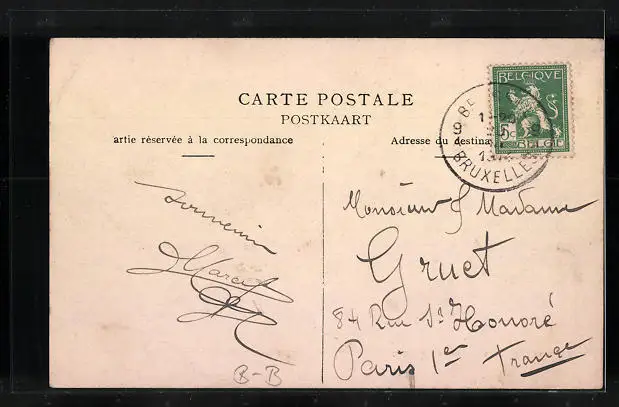 CARTE POSTALE
POSTKAART
artie réservée à la correspondance
Adresse du destina
BELGIQUE
5c
BELGIË
BRUXELLES
9
souvenir
Marcel
B-B
Monsieur & Madame
Gruet
84 Rue St Honoré
Paris 1er France